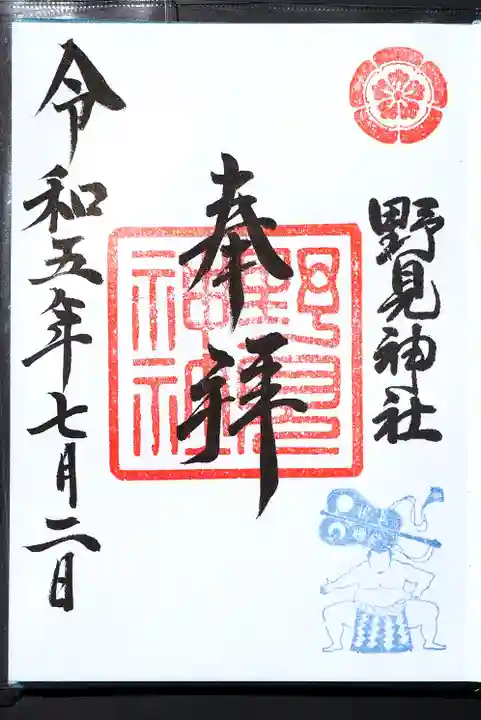 野見神社
奉拝
野見
神社
令和五年七月二日